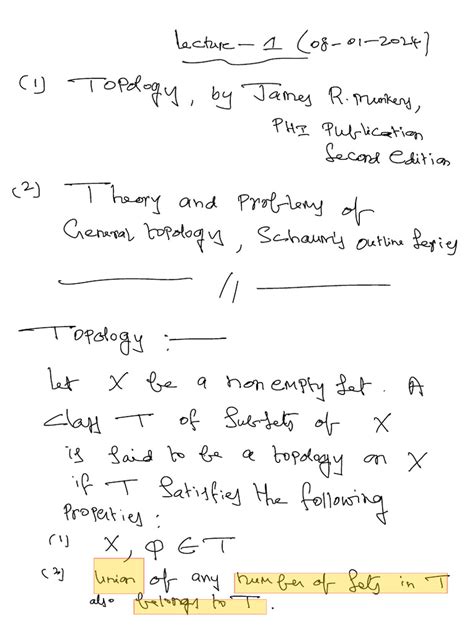 Lecture - 1 (08-01-2024)
(1) Topology, by James R. Munkers,
PHI Publication
Second Edition
(2) Theory and Problems of
General topology, Schaum's outline Series
Topology :-
Let X be a non empty set. A
class T of subsets of X
is said to be a topology on X
if T satisfies the following
properties :
(1) X, φ ∈ T
(2) union of any number of sets in T
also belongs to T.